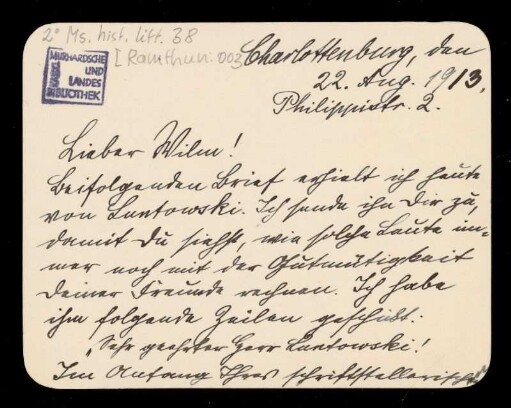 2° Ms. hist. litt. 38
[Ramthun: 003
MURHARDSCHE
UND
LANDES
BIBLIOTHEK
Charlottenburg, den
22. Aug. 1913.
Philippistr. 2.
Lieber Wilm!
Beifolgenden Brief erhielt ich heute
von Lantowski. Ich sende ihn Dir zu,
damit Du siehst, wie solche Leute im-
mer noch mit der Gutmütigkeit
Deiner Freunde rechnen. Ich habe
ihm folgende Zeilen geschickt:
„Sehr geehrter Herr Lantowski!
Im Anfang Ihres schriftstellerischen